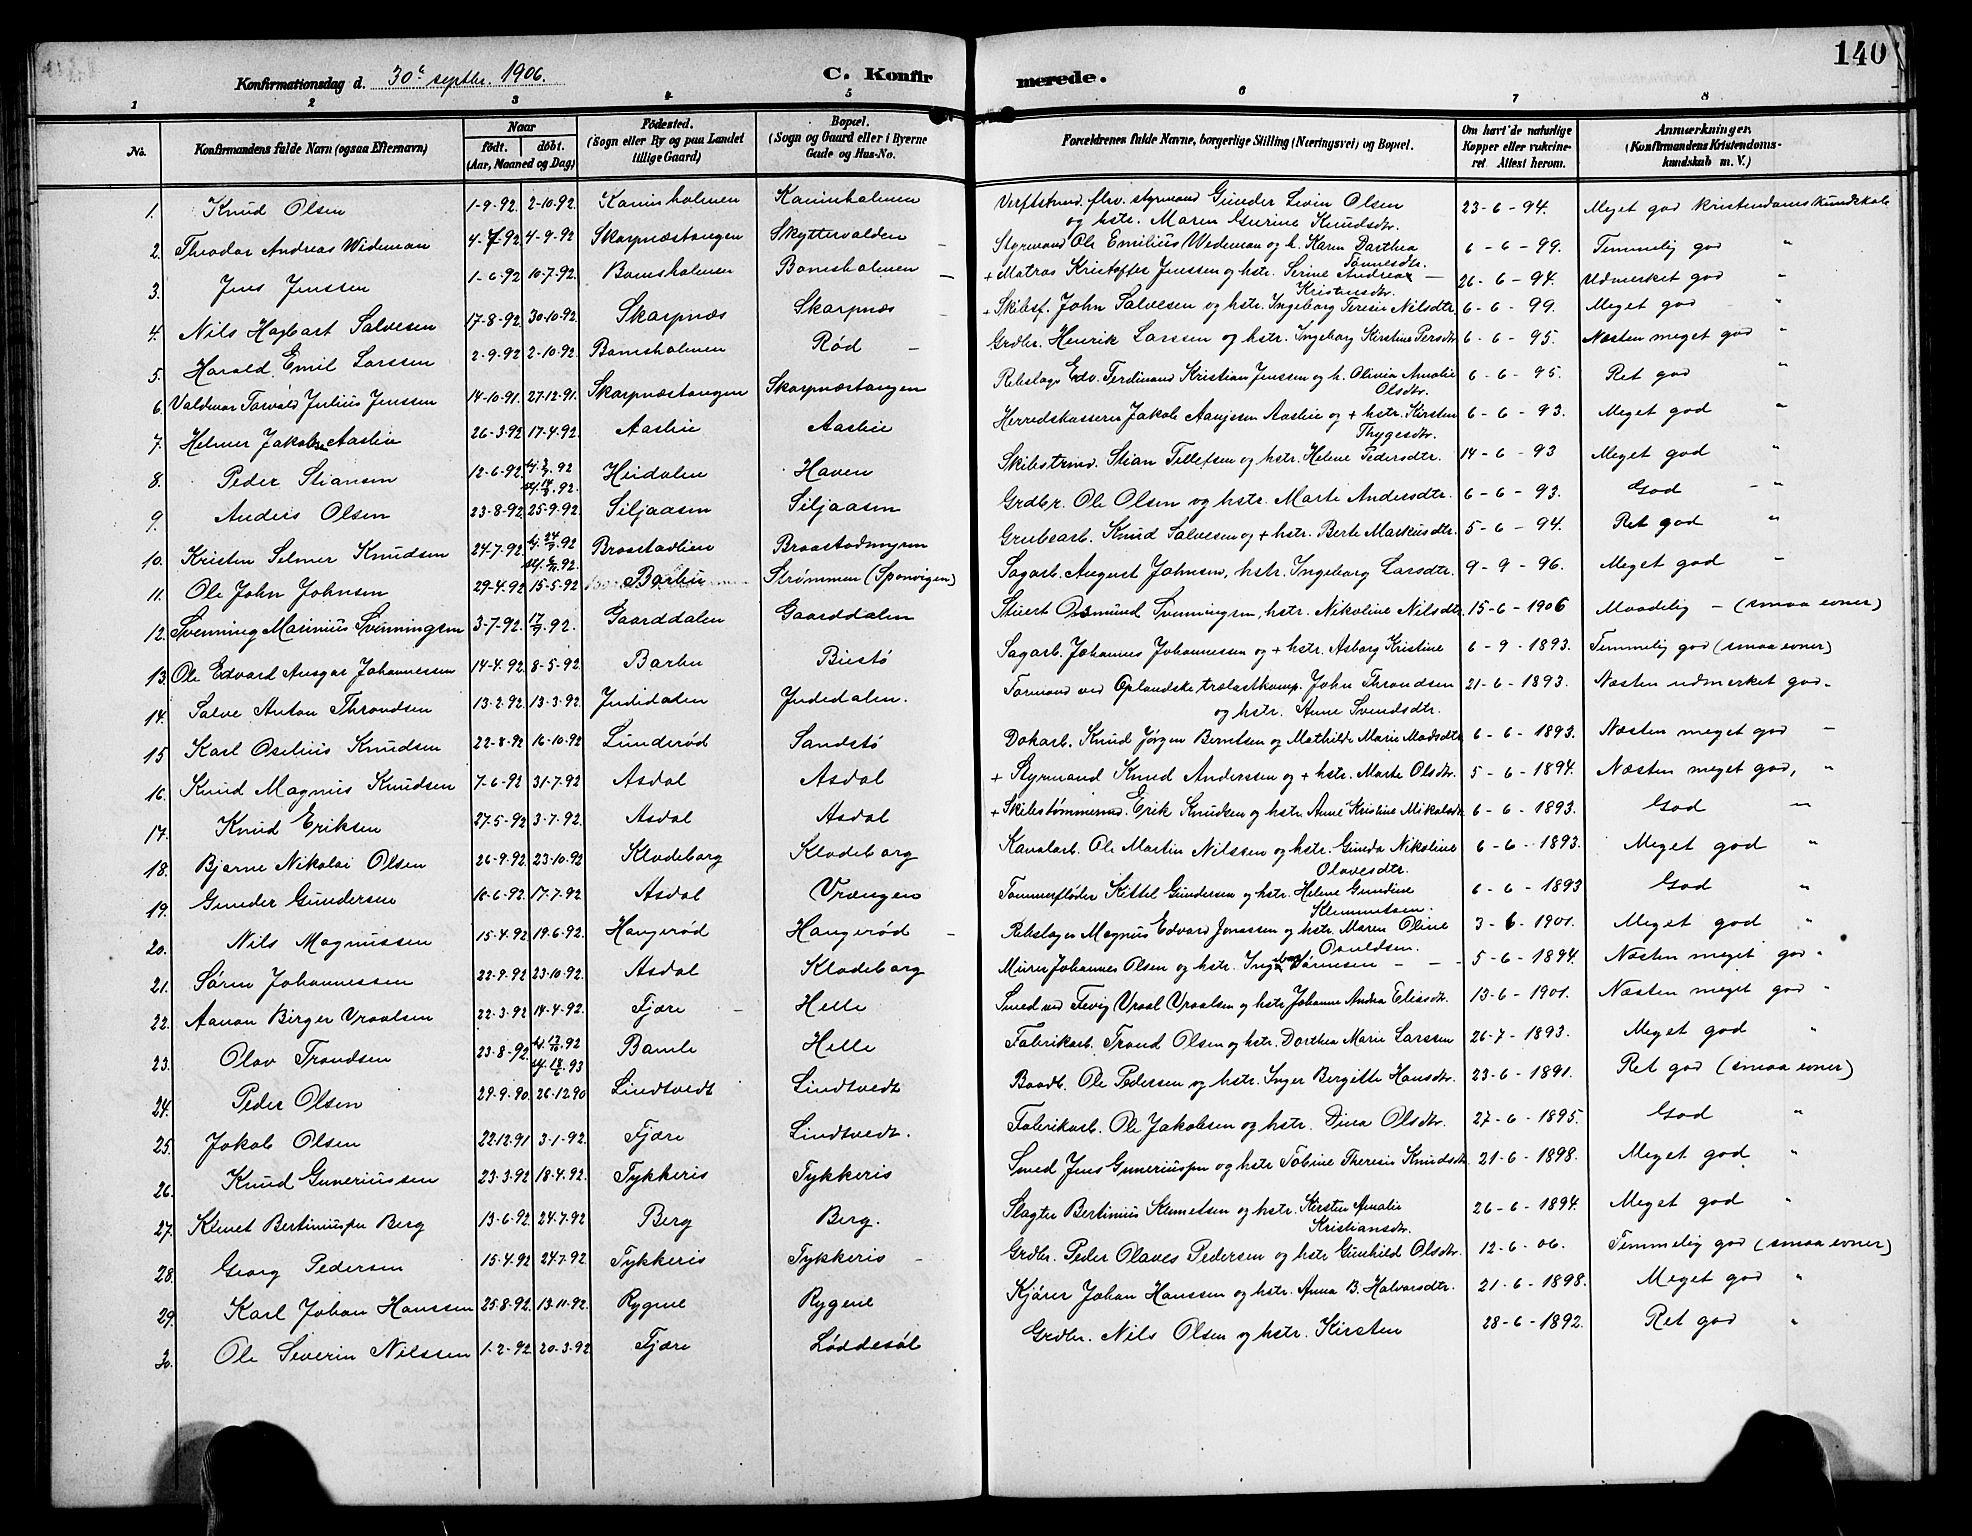 140
Konfirmationsdag d. 30te septbr. 1906. C. Konfirmerede.
1 2 3 4 5 6 7 8
No. Konfirmandens fulde Navn (ogsaa Efternavn) Naar født. døbt. (Aar, Maaned og Dag) Fødested. (Sogn eller By og paa Landet tillige Gaard) Bopæl. (Sogn og Gaard eller i Byerne Gade og Hus-No. Forældrenes fulde Navne, borgerlige Stilling (Næringsvei) og Bopæl. Om havt de naturlige Kopper eller vakcineret Attest herom. Anmærkninger. (Konfirmandens Kristendomskundskab m. V.)
1. Knud Olsen 1-9-92 2-10-92. Kaninholmen Kaninholmen Verftstmd. flrv. styrmand Gunder Livin Olsen 23-6-94. Meget god kristendomskundskab
og hstr. Maren Gurine Knudsdtr.
2. Theodor Andreas Wideman 4-7-92 4-9-92 Skarpnæstangen Skyttervolden Styrmand Ole Emilius Wideman og h. Karen Dorthea 6-6-99. Temmelig god "
Tønnesdtr.
3. Jens Jenssen 1-6-92 10-7-92. Bomsholmen Bomsholmen + Matros Kristoffer Jenssen og hstr. Serine Andrea 26-6-94. Udmerket god "
Kristensdtr.
4. Nils Hagbart Salvesen 17-8-92 30-10-92. Skarpnæs Skarpnæs + Skibsf. John Salvesen og hstr. Ingeborg Teresie Nilsdtr. 6-6-99. Meget god "
5. Harald Emil Larssen 2-9-92 2-10-92. Bomsholmen Rød Grdbr. Henrik Larssen og hstr. Ingeborg Kirstine Persdtr 6-6-95. Næsten meget god "
6. Valdemar Torvald Julius Jenssen 14-10-91. 27-12-91. Skarpnæstangen Skarpnæstangen Rebslager Edv. Ferdinand Kristian Jenssen og h. Olivia Amalie 6-6-95. Ret god "
Olsdtr.
7. Helmer Jakobsen Aasbie 26-3-92 17-4-92. Aasbie Aasbie Herredskasserer Jakob Aanjesen Aasbie og + hstr. Kirsten 6-6-93. Meget god "
Thygesdtr.
8. Peder Stiansen 12-6-92 Heidalen Haven Skibstmd. Stian Tellefsen og hstr. Helene Pedersdtr. 14-6-93 Meget god "
9. Anders Olsen 23-8-92 25-9-92 Siljaasen Siljaasen Grdbr. Ole Olsen og hstr. Marte Andersdtr. 6-6-93. God "
10. Kristen Selmer Knudsen 24-7-92. Braastadlien Braastadmyren Grubearb. Knud Salvesen og + hstr. Berte Markusdtr. 5-6-94. Ret god "
11. Ole John Johnsen 29-4-92 15-5-92 Barbu Strømmen (Sponvigen) Sagarb. August Johnsen, hstr. Ingeborg Larsdtr. 9-9-96. Meget god "
12. Svenning Marinius Svenningsen 3-7-92. 17/7 92. Gaarddalen Gaarddalen Stuert Osmund Svenningsen, hstr. Nikoline Nilsdtr. 15-6-1906 Maadelig - (smaa evner)
13. Ole Edvard Ansgar Johannessen 14-4-92 8-5-92. Barbu Biestø Sagarb. Johannes Johannessen og + hstr. Asborg Kristine 6-9-1893. Temmelig god (smaa evner)
14. Salve Anton Throndsen 13-2-92 13-3-92 Judidalen Judidalen. Formand ved Oplandske trælastkomp. John Throndsen 21-6-1893. Næsten udmerket god -
og hstr. Anne Svendsdtr.
15 Karl Oselius Knudsen 22-8-92 16-10-92 Lunderød Sandstø Dokarb. Knud Jørgen Berntsen og Mathilde Marie Madsdtr 6-6-1893. Næsten meget god -
16. Knud Magnus Knudsen 7-6-92 31-7-92. Asdal Asdal + Styrmand Knud Anderssen og + hstr. Marte Olsdtr. 5-6-1894. Næsten meget god, "
17. Knud Eriksen 27-5-92 3-7-92. Asdal Asdal + Skibstømmermd. Erik Knudsen og hstr. Anne Kristine Mikalsdtr 6-6-1893. God "
18. Bjarne Nikolai Olsen 26-9-92 23-10-92 Klodeborg Klodeborg Kanalarb. Ole Martin Nilssen og hstr. Gunda Nikoline 6-6-1893. Meget god "
Olavesdtr.
19. Gunder Gundersen 16-6-92 17-7-92 Asdal Vrængen Tømmerfløder Kittel Gundersen og hstr. Helene Gundine 6-6-1893 God "
Klemmetsen.
20. Nils Magnussen 15-4-92 19-6-92. Haugerød Haugerød Rebslager Magnus Edvard Jonassen og hstr. Maren Oline 3-6-1901. Meget god "
Osuldsen.
21. Søren Johannessen 22-9-92 23-10-92. Asdal Klodeborg Murer Johannes Olsen og hstr. Sørensen - - 5-6-1894. Næsten meget god "
22. Aanon Birger Vraalsen 22-3-92 14-4-92. Fjære Helle Smed ved Fevig Vraal Vraalsen og hstr Johanne Andrea Eliasdtr. 13-6-1901. Næsten meget god "
23. Olav Trondsen 23-8-92 Bamle Helle Fabrikarb. Trond Olsen og hstr. Dorthea Marie Larssen 26-7-1893. Meget god "
24. Peder Olsen 29-9-90. 26-12-90 Lindtvedt Lindtvedt Baadb. Ole Pedersen og hstr. Inger Bergitte Hansdtr. 23-6-1891. Ret god (smaa evner)
25. Jakob Olsen 22-12-91 3-1-92. Fjære Lindtvedt. Fabrikarb. Ole Jakobsen og hstr. Dina Olsdtr. 27-6-1895. God "
26. Knud Guneriussen 23-3-92 18-4-92. Tykkeris Tykkeris Smed Jens Guneriussen og hstr Tobine Theresie Knudsdtr. 21-6-1898. Meget god "
27. Klemet Bertiniussen Berg 13-6-92 24-7-92 Berg Berg. Slagter Bertinius Klemetsen og hstr. Kirsten Amalie 26-6-1894. Meget god "
Kristiansdtr.
28. Georg Pedersen 15-4-92 24-7-92 Tykkeris Tykkeris Grdbr. Peder Olaves Pedersen og hstr Gunhild Olsdtr. 12-6-06. Temmelig god (smaa evner)
29. Karl Johan Hanssen 25-8-92. 13-11-92. Rygene Rygene Kjører Johan Hanssen og hstr. Anna B. Halvorsdtr. 21-6-1898. Meget god "
30. Ole Severin Nilssen 1-2-92 20-3-92 Fjære Løddesøl Grdbr. Nils Olsen og hstr. Kirsten 28-6-1892. Ret god "